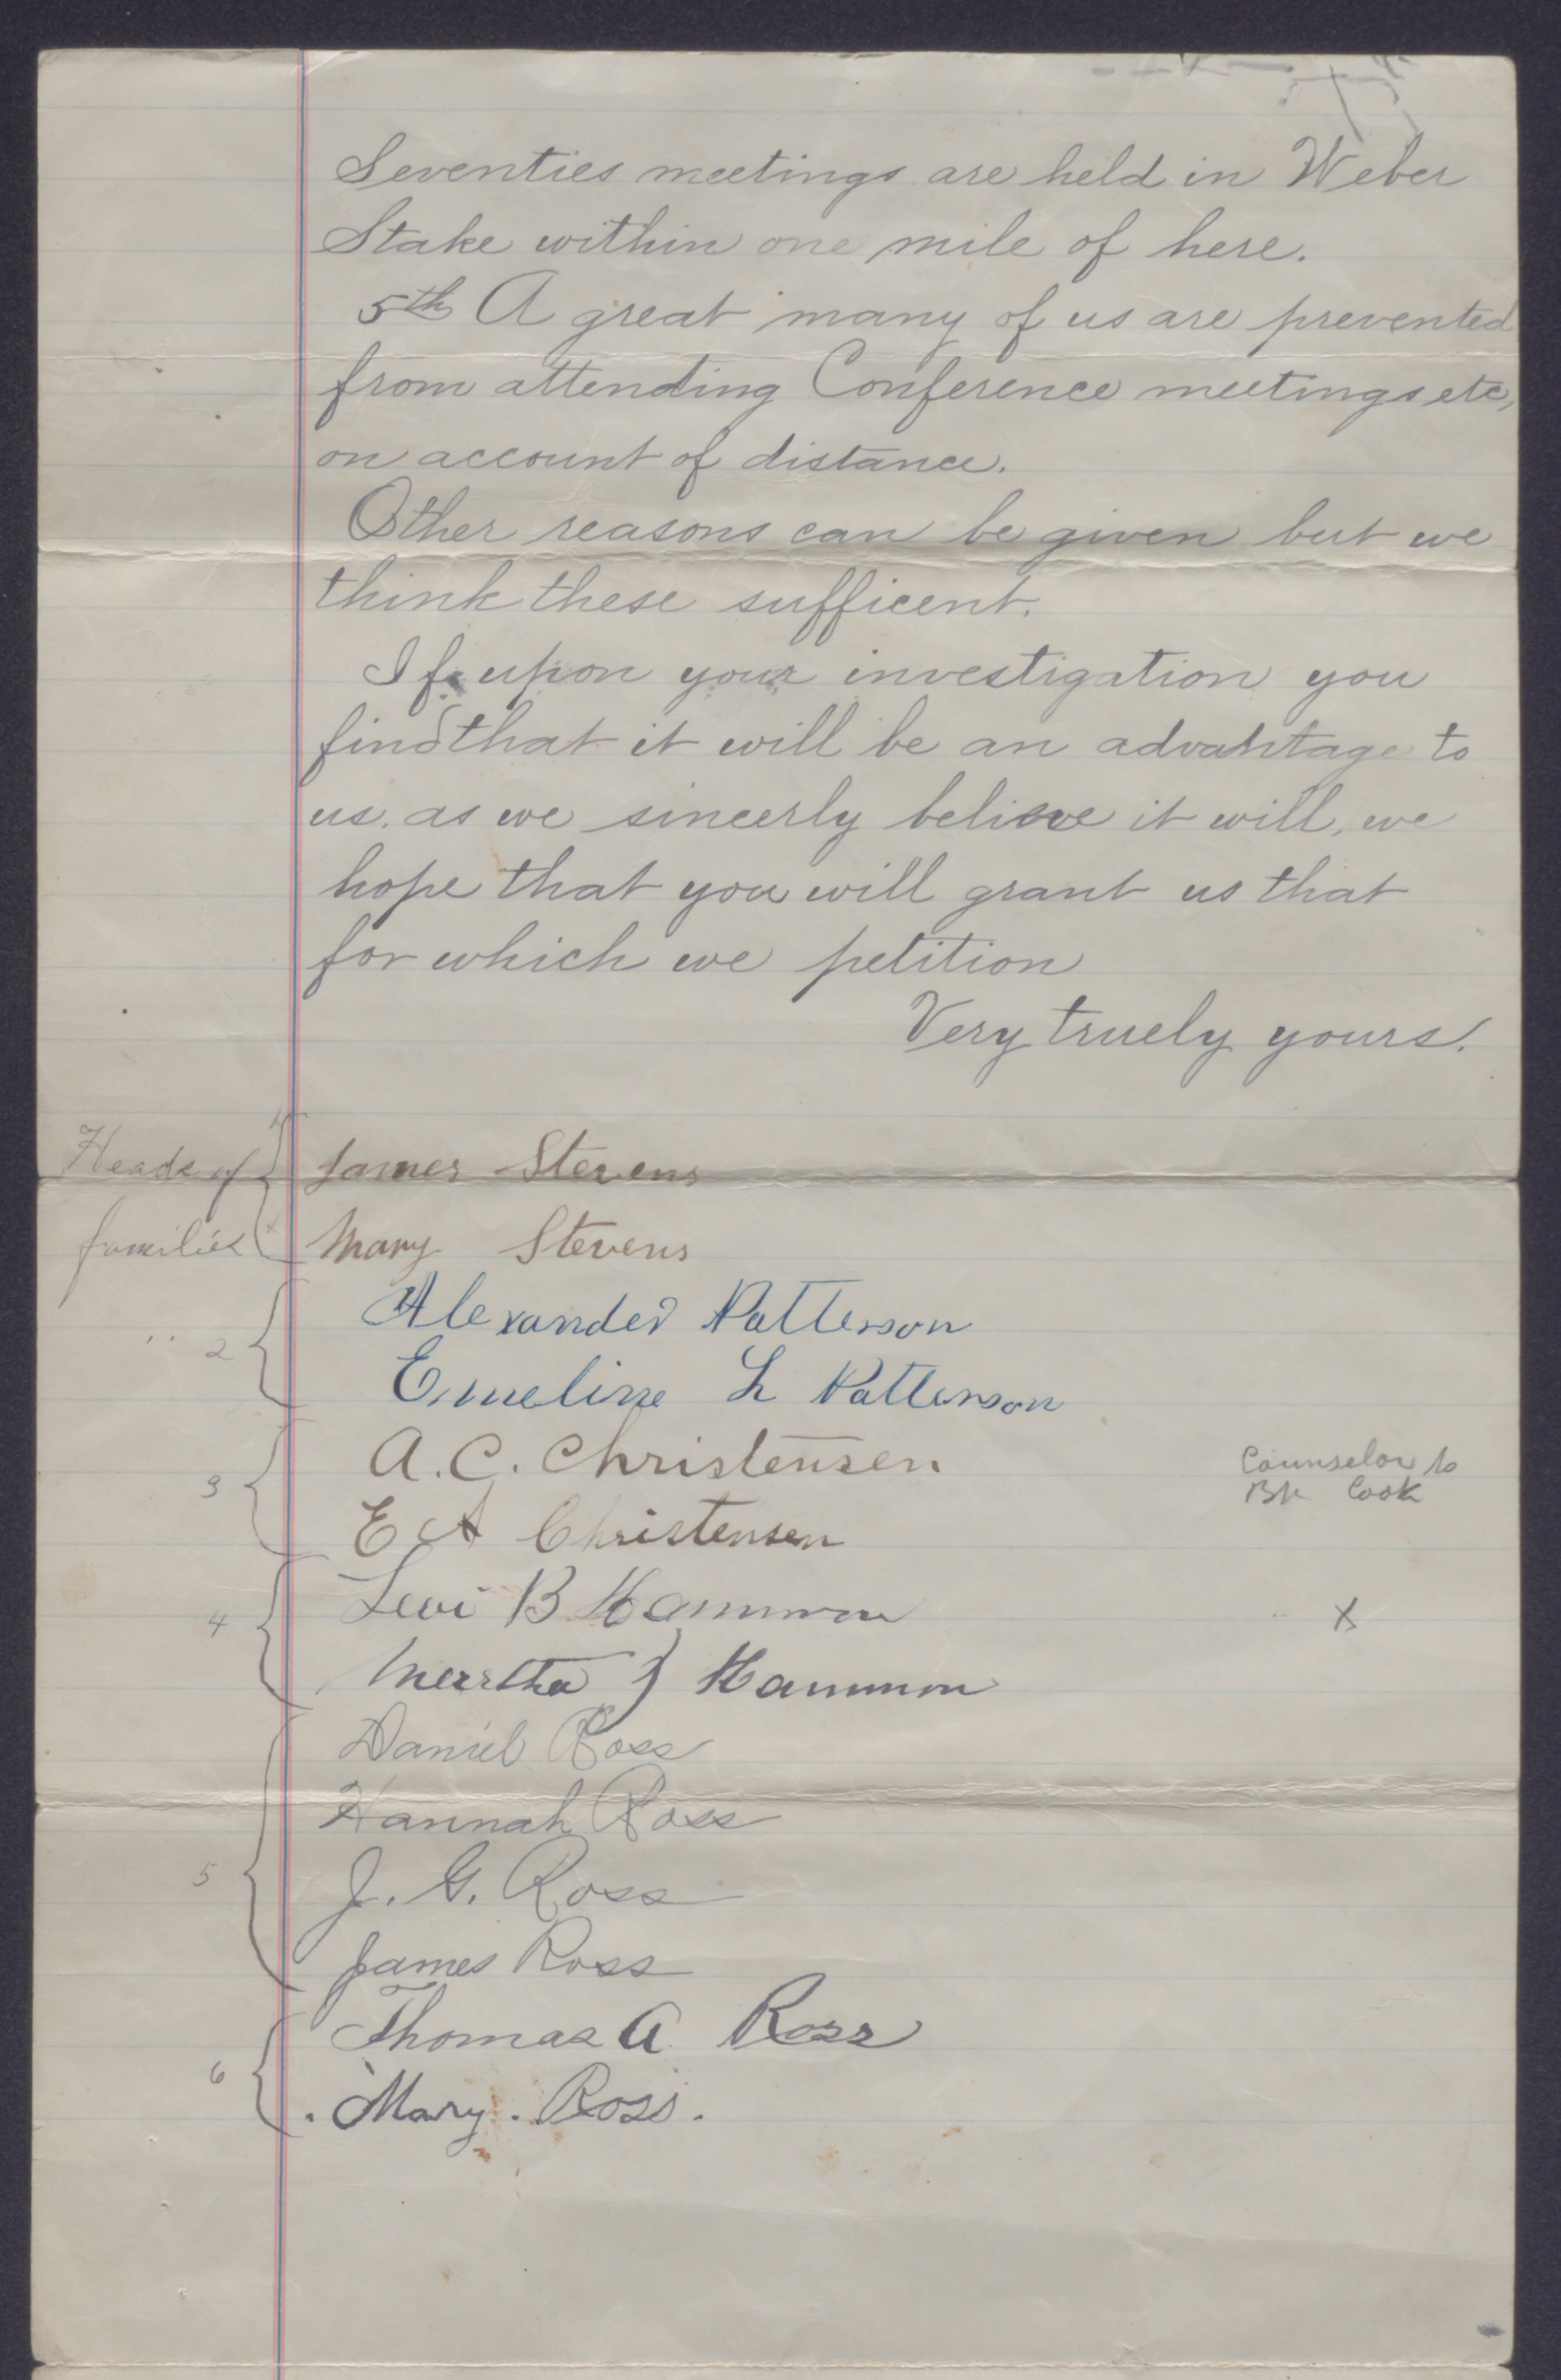 Seventies meetings are held in Weber
Stake within one mile of here.
5th A great many of us are prevented
from attending Conference meetings etc,
on account of distance.
Other reasons can be given but we
think these sufficent.
If upon your investigation you
find that it will be an advantage to
us. as we sincerly believe it will, we
hope that you will grant us that
for which we petition
Very truely yours.
Heads of James Stevens
families Mary Stevens
Alexander Patterson
2
Emeline L Patterson
A. C. Christensen Counselor to
3 Bp Cook
E A Christensen
4 Levi B Hammon X
Hammon
Daniel Ross
Hannah Ross
5 J. G. Ross
James Ross
Thomas A Ross
6 . Mary . Ross .